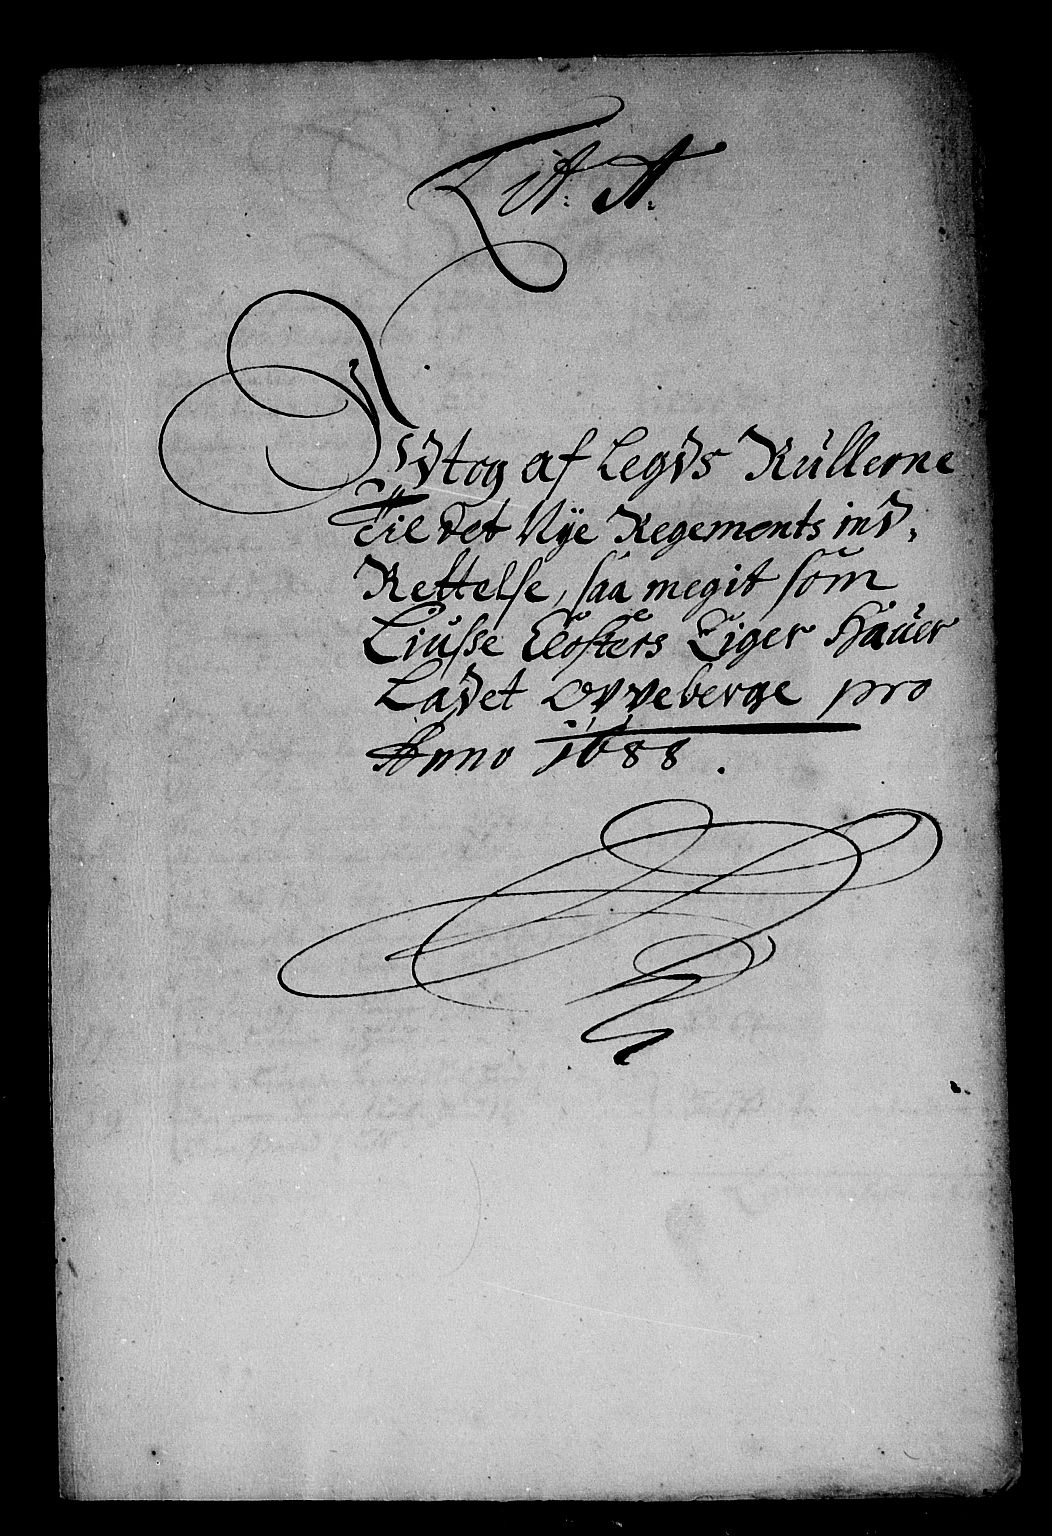 Lit: A.
Vdtog af Legds Rüllerne
Til det Nÿe Regements ind,
Rettelse, saa megit som
Liusse Closters Eiger Hauer
Ladet Oppeberge pro
Anno 1688.